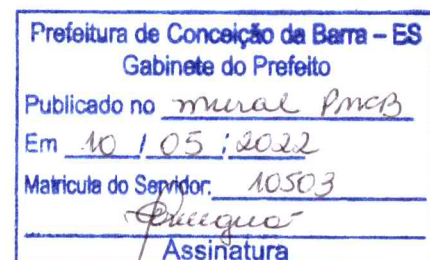 Prefeitura de Conceição da Barra – ES
Gabinete do Prefeito
Publicado no mural PMCB
Em 10 / 05 / 2022
Matricula do Servidor: 10503
Assinatura